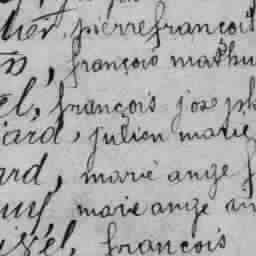 pierre françois
françois mathu
el, françois joseph
ard, julien marie
ard, marie ange
uy marie ange
françois